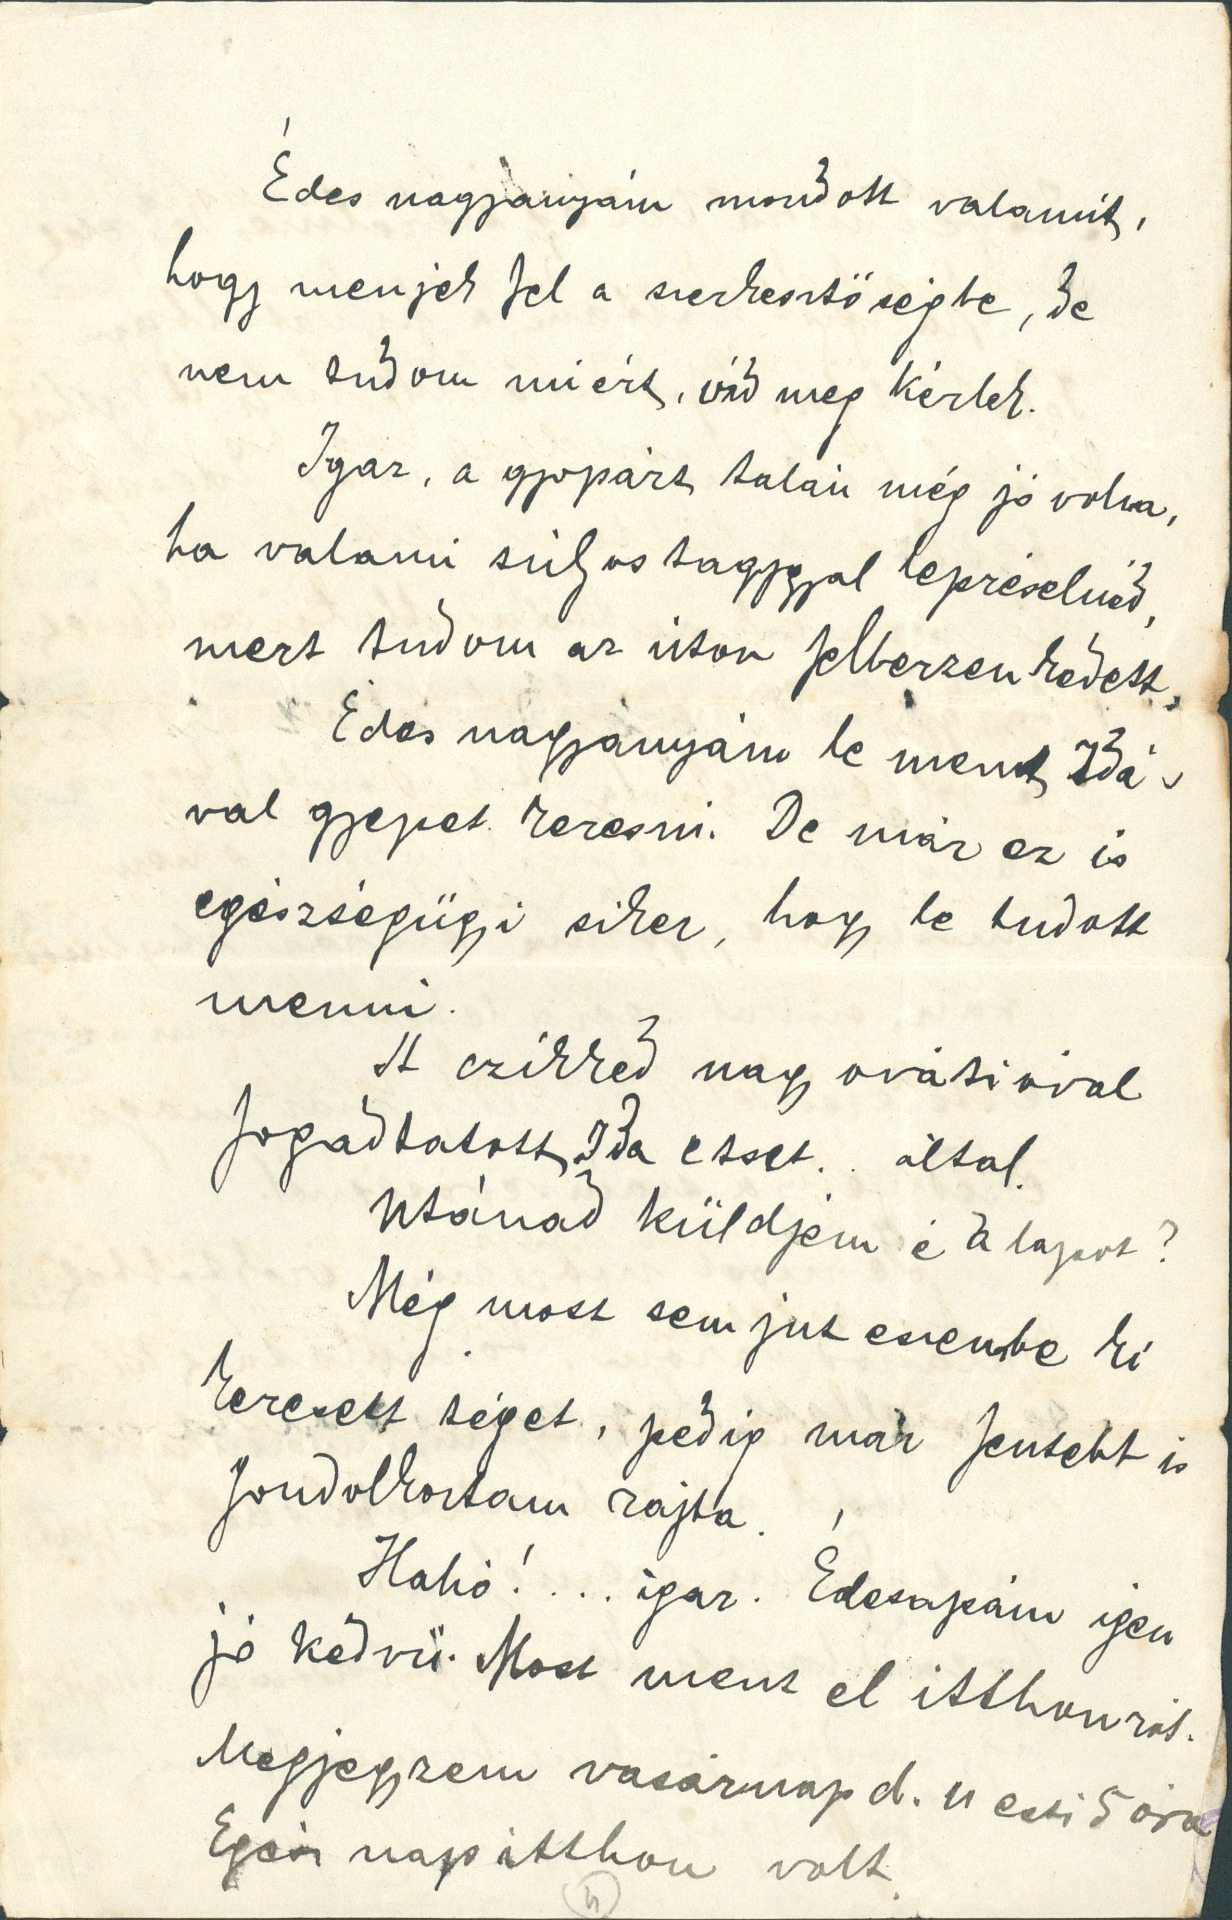 Édes nagyanyám mondott valamit,
hogy menjek fel a szerkesztőségbe, de
nem tudom miért, írd meg kérlek.
Igaz, a gyopárt talán még jó volna,
ha valami súlyos taggyal lepréselnéd,
mert tudom az úton felberzenkedett,
Édes nagyanyám le ment Idá-
val gyepet keresni. De már ez is
egészségügyi siker, hogy le tudott
menni.
A czikked nagy ovátióval
fogadtatott Ida etset.. által.
Utánad küldjem é a lapot?
Még most sem jut eszembe ki
keresett téged, pedig már fentebb is
gondolkoztam rajta.
Halió! ... igaz. Édesapám igen
jó kedvű. Most ment el itthonról.
Megjegyzem vasárnap d. u esti 5 óra
Egész nap itthon volt.
4